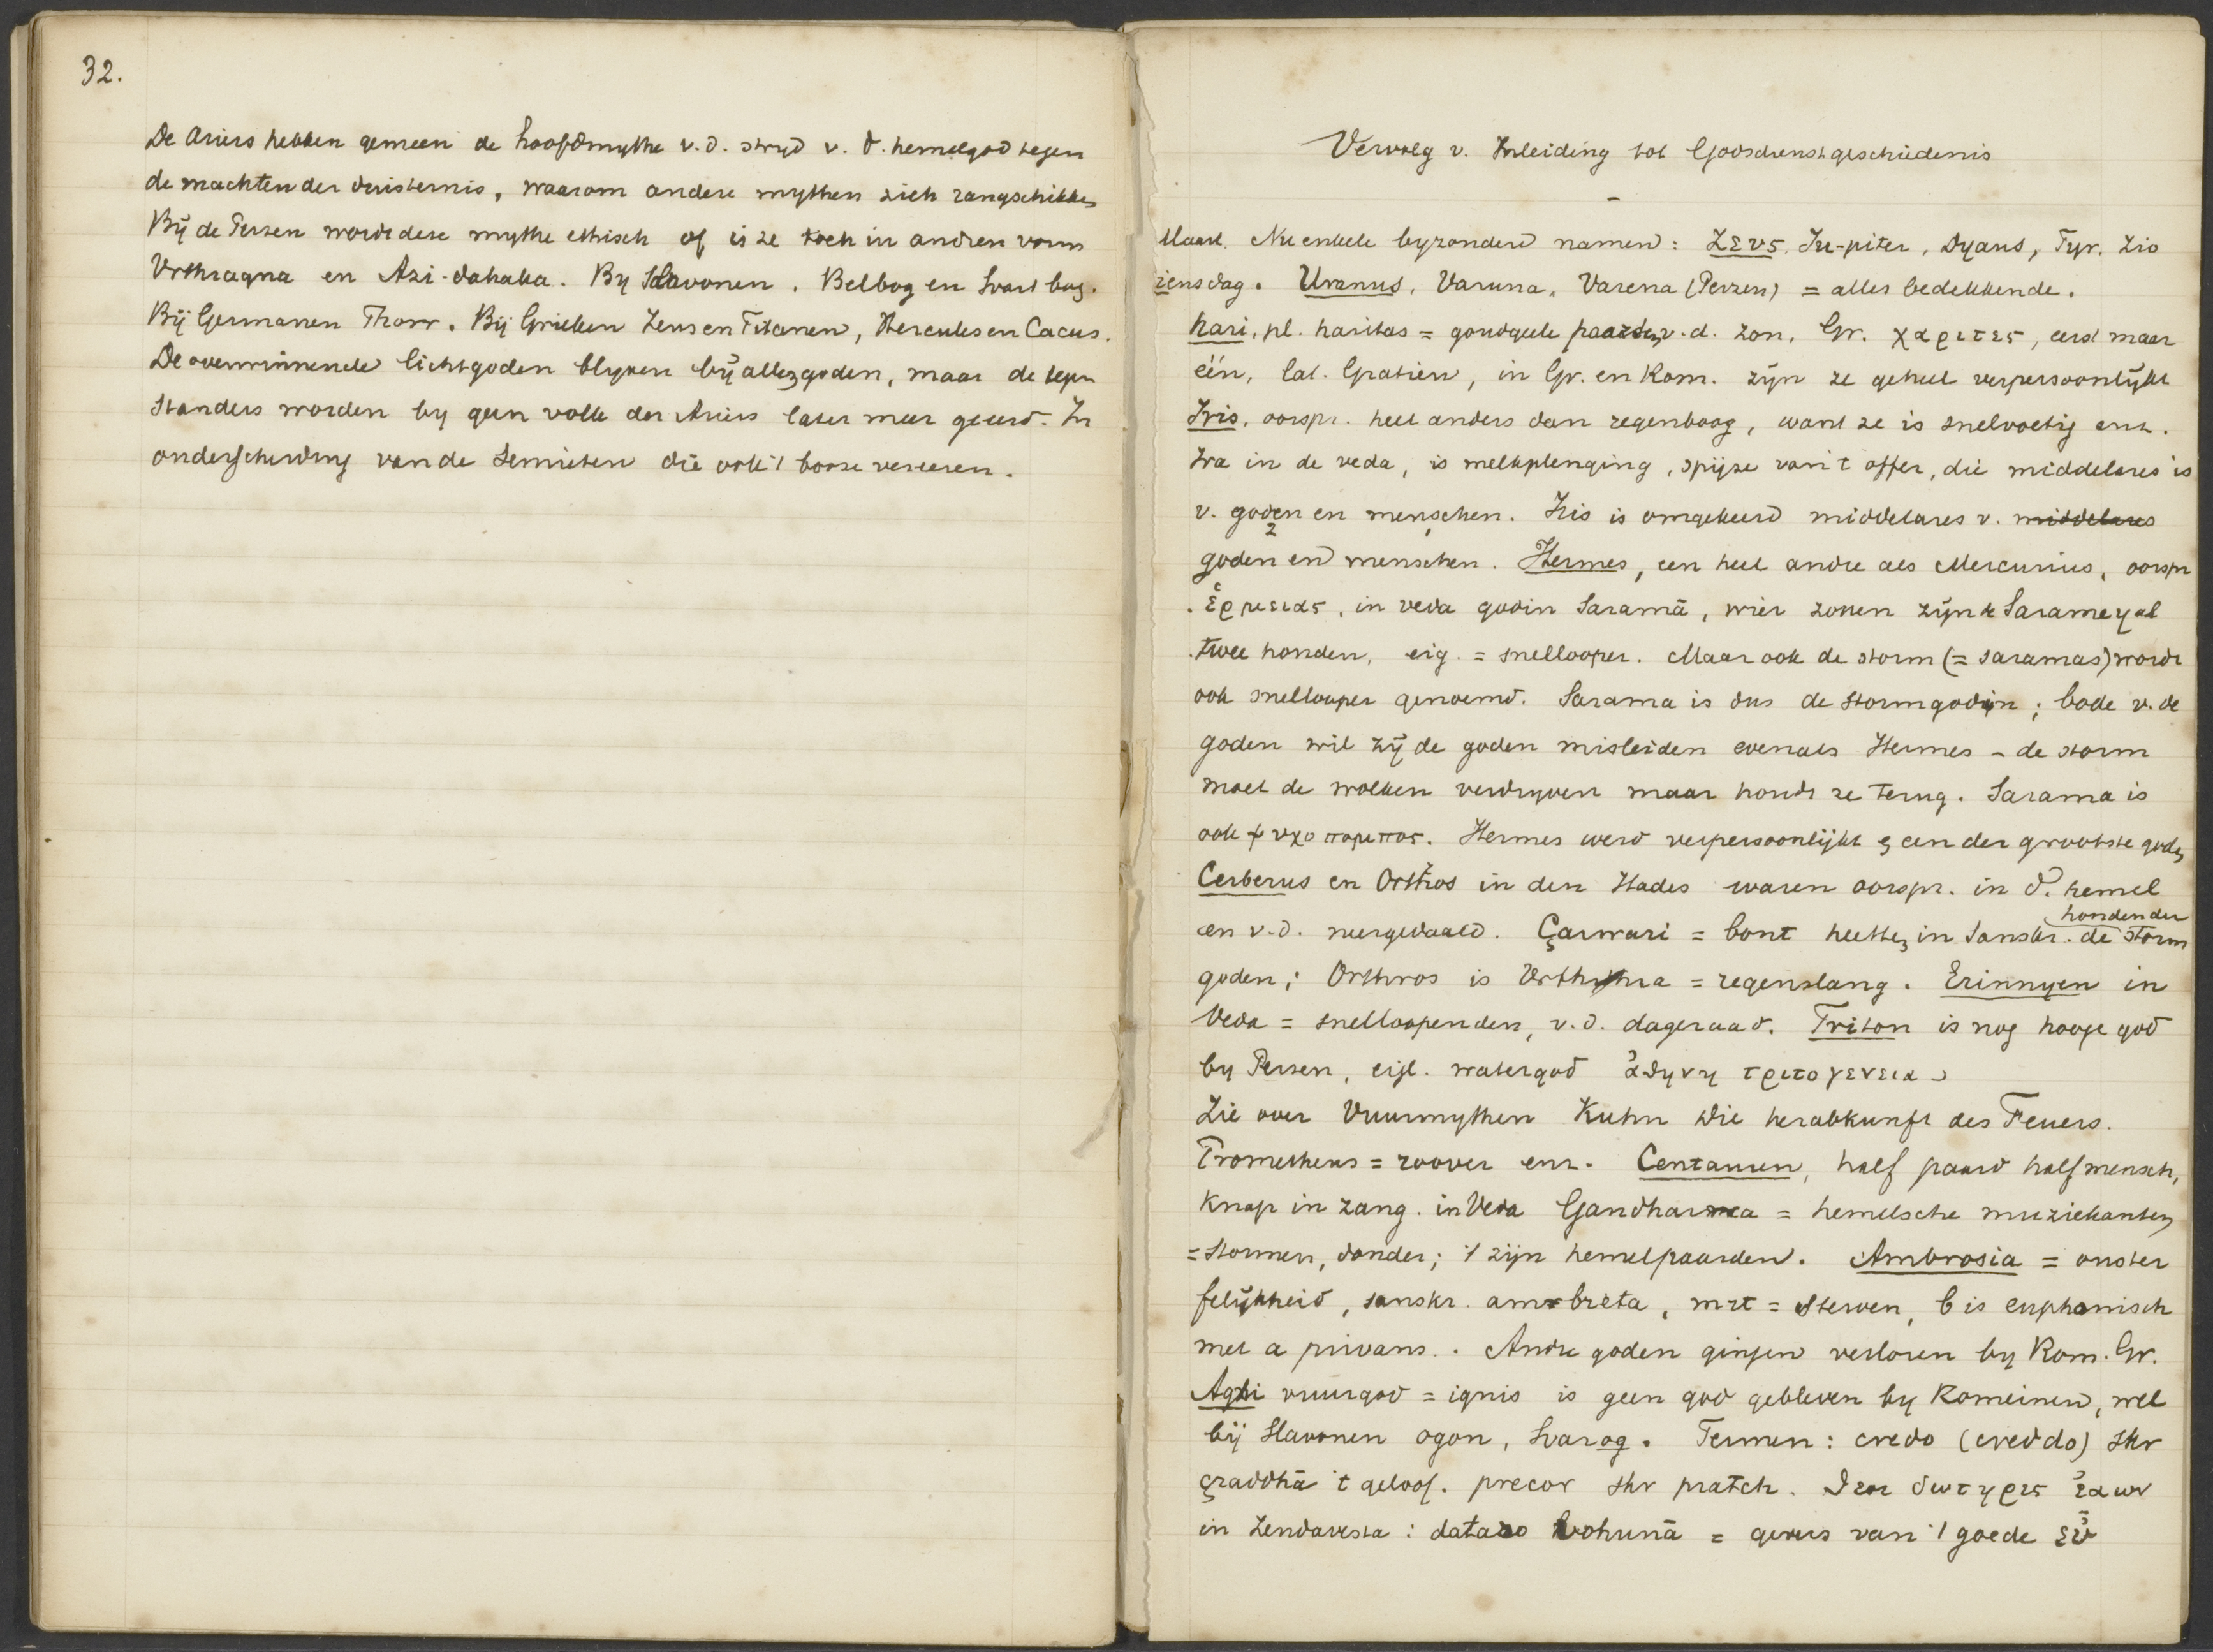 32.
De Ariers hebben gemeen de hoofdmythe v.d. stryd v. d. hemelgod tegen
de machten der duisternis, waarom andere mythen zich rangschikken
Bij de Perzen wordt deze mythe ethisch of is ze toch in andren vorm
Vrthragna en Azi-dahaka. By Slavonen, Belbog en Svart bog.
Bij Germanen Thorr. Bij Grieken Zeus en Titanen, Hercules en Cacus.
De overwinnende lichtgoden blyven bij allen goden, maar de tegen
standers worden by geen volk der Ariers later meer geeerd. In
onderscheiding van de Semieten die ook 't booze vereeren.
Vervolg v. Inleiding tot Godsdienstgeschiedenis
Maart. Nu enkele byzondere namen: Ζευς, Ju-piter, Dyaus, Tyr, Zio
ziensdag. Uranus, Varuna, Varena (Perzen) = alles bedekkende.
Hari, pl. haritas = goudgele paarden v.d. zon, Gr. χαριτες, eerst maar
één, Lat. Gratien, in Gr. en Rom. zijn ze geheel verpersoonlijkt
Iris, oorspr. heel anders dan regenboog, want ze is snelvoetig enz.
Ira in de veda, is melkplenging, spijze van 't offer, die middelares is
v. goden en menschen. Iris is omgekeerd middelares v. middelares
goden en menschen. Hermes, een heel andre als Mercurius, oorspr
. ἑρμειας, in veda godin Saramā, wier zonen zijn de Sarameyal
twee honden, eig. = snellooper. Maar ook de storm (= saramas) wordt
ook snellooper genoemd. Sarama is dus de stormgodin; bode v. de
goden wil zij de goden misleiden evenals Hermes - de storm
moet de wolken verdryven maar houdt ze terug. Sarama is
ook ψυχοπομπος. Hermes werd verpersoonlijkt & een der grootste goden
Cerberus en Orthros in den Hades waren oorspr. in d. hemel
en v.d. neergedaald. Çarwari = bont heetten in Sanskr. de honden der storm
goden; Orthros is Vrthra = regenslang. Erinnyen in
Veda = snelloopenden, v.d. dageraad. Triton is nog hooge god
by Perzen, eigl. watergod ἀθηνη τριτογενεια
Zie over Vuurmythen Kuhn Die herabkunft des Feuers.
Prometheus = roover enz. Centauren, half paard half mensch,
Knap in zang. in Veda Gandharva = hemelsche muziekanten
= stormen, donder; 't zijn hemelpaarden. Ambrosia = onster
felijkheid, sanskr. am-breta, mrt = sterven, b is euphonisch
met a privans. Andre goden gingen verloren by Rom. Gr.
Agni vuurgod = ignis is geen god gebleven by Romeinen, wel
bij Slavonen ogon, Svarog. Termen: credo (creddo) skr
çraddhā 't geloof. precor skr pratch. θεοι δωτηρες ἐαων
in Zendavesta: dataro vohunā = gevers van 't goede εὐ